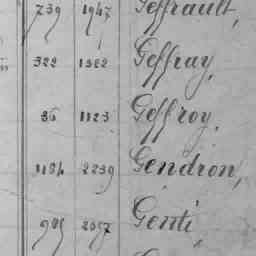 739 1947 Geffrault,
322 1362 Geffray,
86 1123 Geffroy,
1164 2239 Gendron,
2057 Genti,